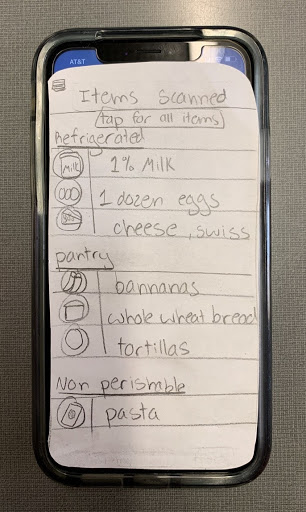 AT&T
Items Scanned
tap for all items
Refrigerated
Milk 1% Milk
1 dozen eggs
cheese, swiss
pantry
bannanas
whole wheat bread
tortillas
Non perishable
pasta